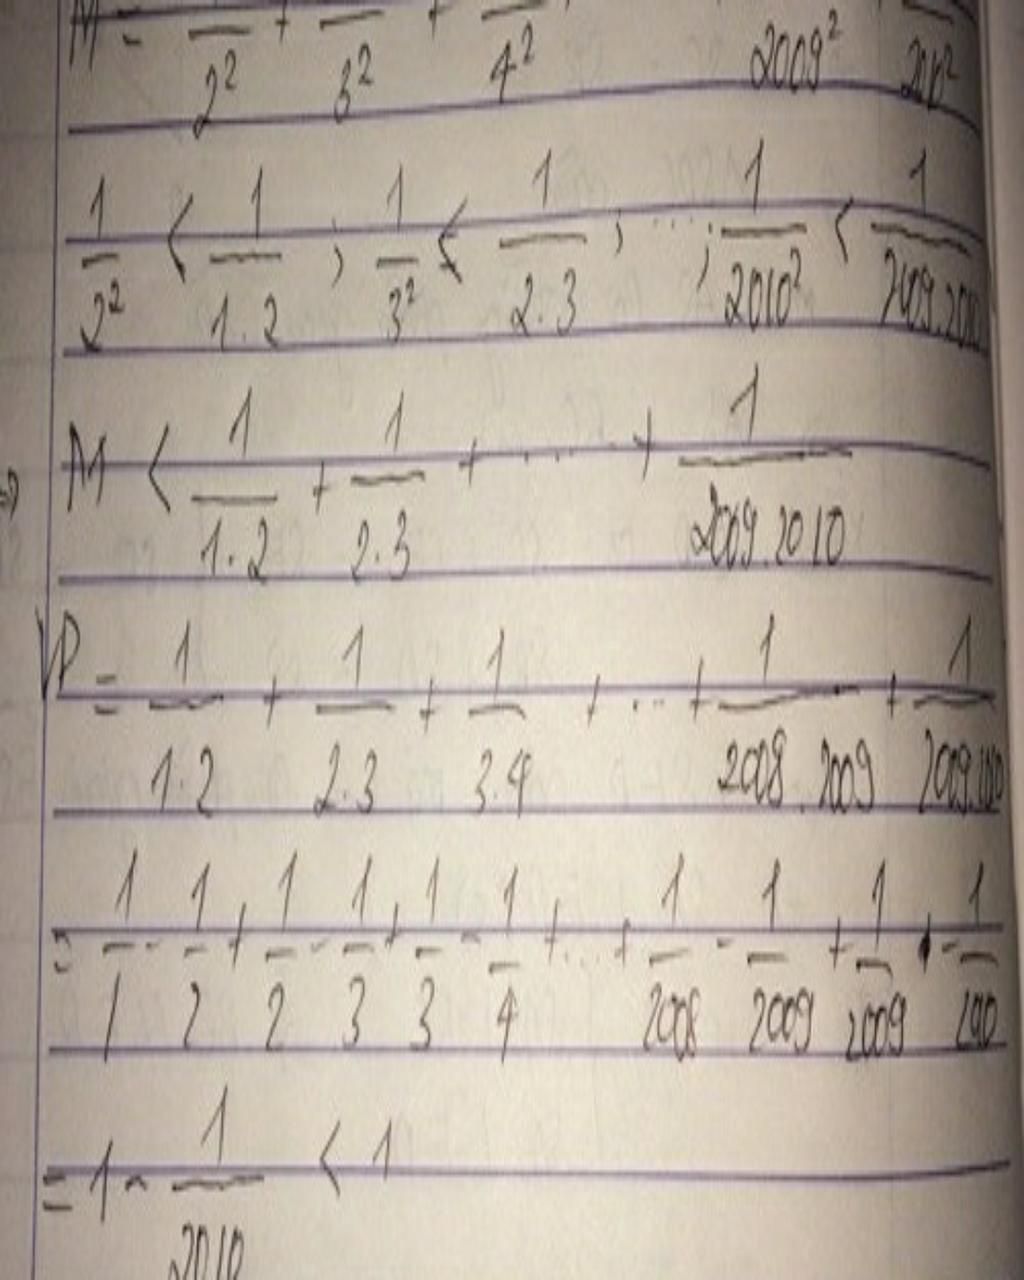 M = 1/2² + 1/3² + 1/4² ... 1/2009² + 1/2010²
1/2² < 1/1.2 ; 1/3² < 1/2.3 ; ... ; 1/2010² < 1/2009.2010
⇒ M < 1/1.2 + 1/2.3 + ... + 1/2009.2010
VP = 1/1.2 + 1/2.3 + 1/3.4 + ... + 1/2008.2009 + 1/2009.2010
= 1/1 - 1/2 + 1/2 - 1/3 + 1/3 - 1/4 + ... + 1/2008 - 1/2009 + 1/2009 - 1/2010
= 1 - 1/2010 < 1